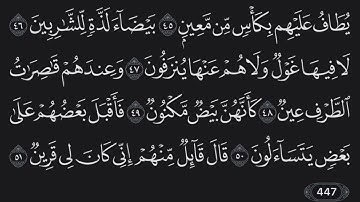 يُطَافُ عَلَيْهِم بِكَأْسٍ مِّن مَّعِينٍۭ ٤٥ بَيْضَآءَ لَذَّةٍ لِّلشَّـٰرِبِينَ ٤٦
لَا فِيهَا غَوْلٌ وَلَا هُمْ عَنْهَا يُنزَفُونَ ٤٧ وَعِندَهُمْ قَـٰصِرَٰتُ
ٱلطَّرْفِ عِينٌ ٤٨ كَأَنَّهُنَّ بَيْضٌ مَّكْنُونٌ ٤٩ فَأَقْبَلَ بَعْضُهُمْ عَلَىٰ
بَعْضٍ يَتَسَآءَلُونَ ٥٠ قَالَ قَآئِلٌ مِّنْهُمْ إِنِّى كَانَ لِى قَرِينٌ ٥١
447